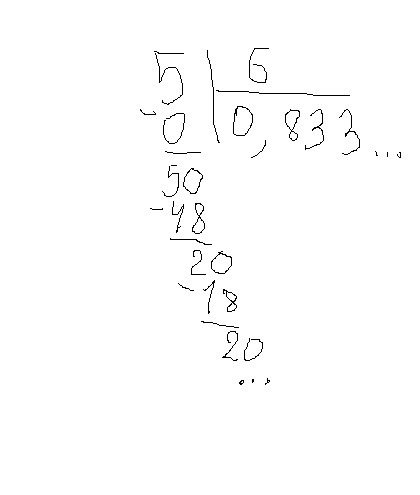 5 6
- 0 0,833...
50
- 48
20
- 18
20
...